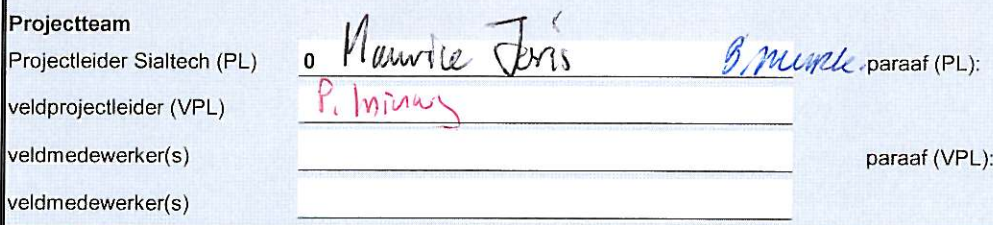 Projectteam
Projectleider Sialtech (PL) 0 Maurice Joris paraaf (PL):
veldprojectleider (VPL) P.
veldmedewerker(s) paraaf (VPL):
veldmedewerker(s)